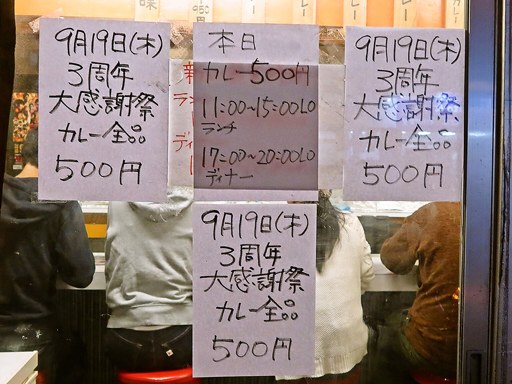 9月19日(木)
3周年
大感謝祭
カレー全品
500円
本日
カレー500円
11:00~15:00LO
ランチ
17:00~20:00LO
ディナー
9月19日(木)
3周年
大感謝祭
カレー全品
500円
9月19日(木)
3周年
大感謝祭
カレー全品
500円